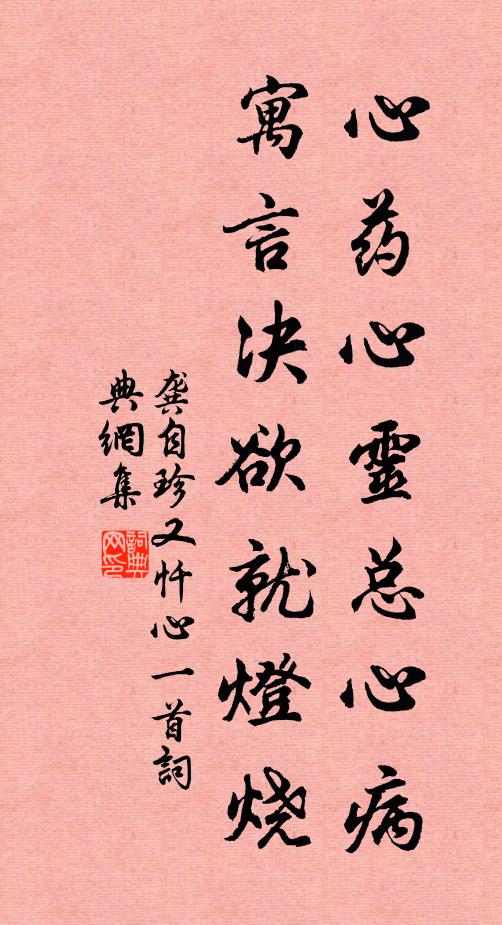 心药心靈总心病
寓言决欲就燈烧
龚自珍又忏心一首詞
典網集
詞典网印